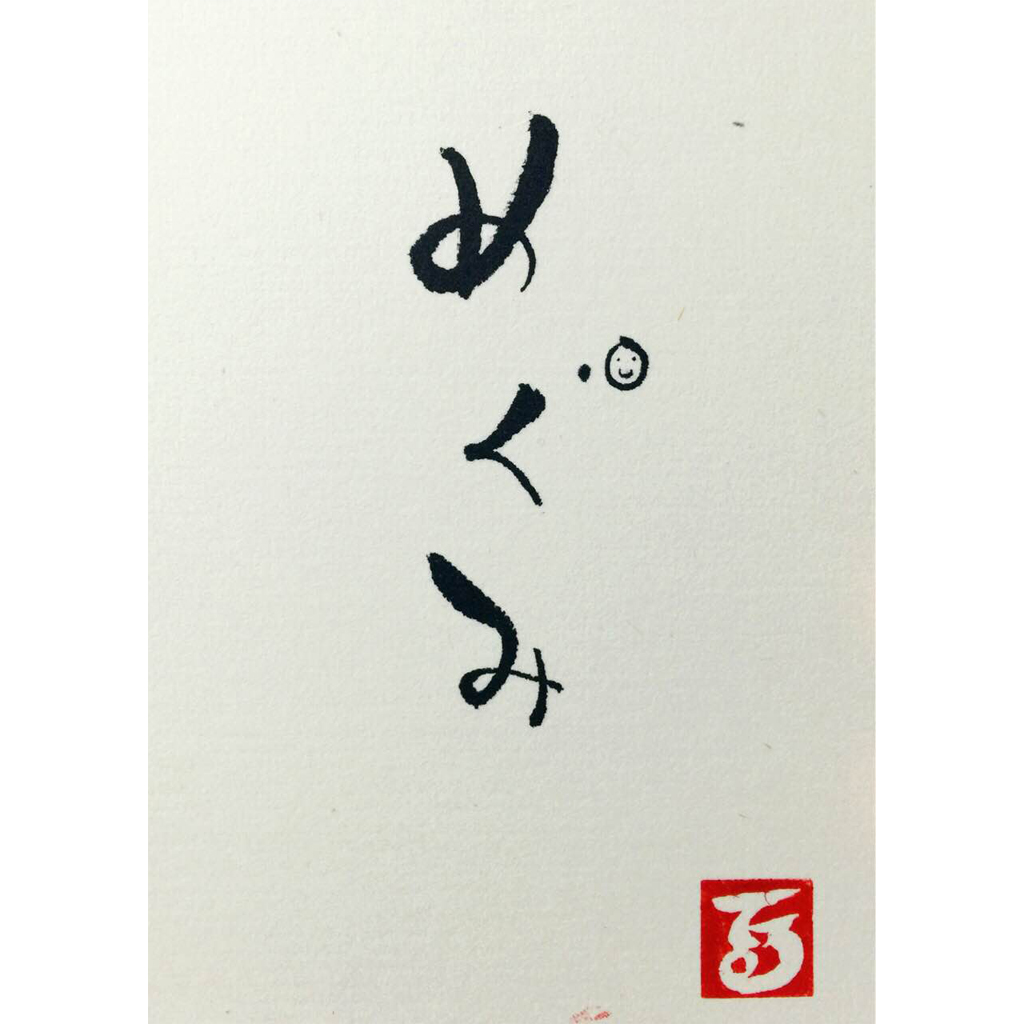 めぐみ